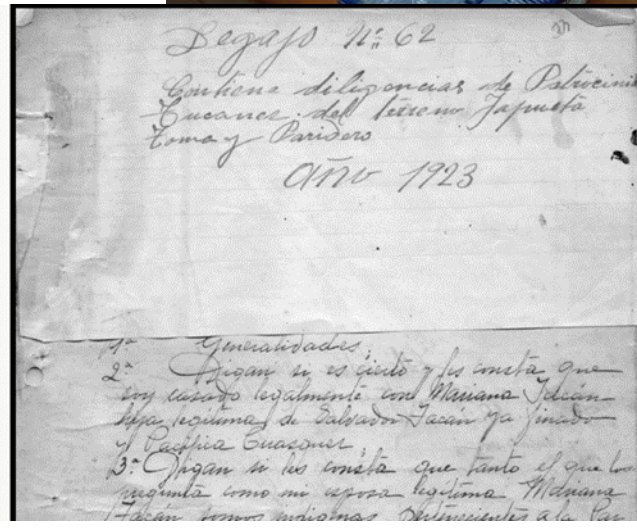 Legajo Nº 62
Contiene diligencias de Patrocinio
Cucanez del terreno Japueta
Loma y Paridero
Año 1923
1ª Generalidades.
2ª Digan si es cierto y les consta que
soy casado legalmente con Mariana Jacán
hija legítima de Salvador Jacán ya finado
y Pacífica Cuasquer
3ª Digan si les consta que tanto el que los
pregunta como mi esposa legitima Mariana
Jacán somos indígenas pertenecientes a la Par